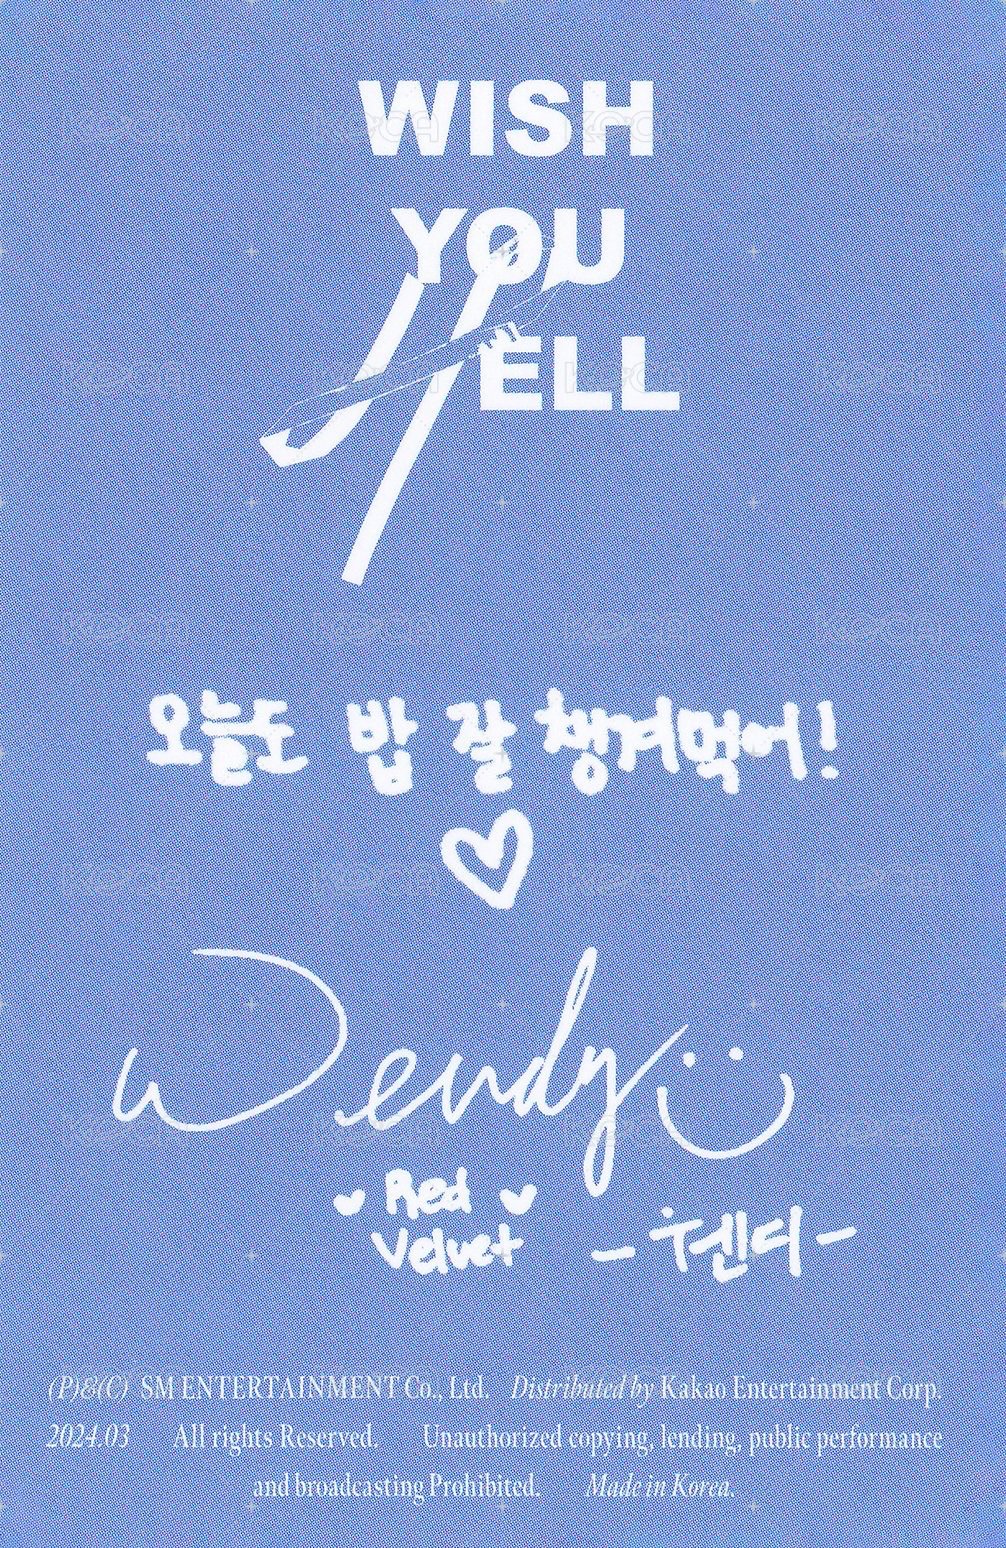 WISH
YOU
HELL
오늘도 밥 잘 챙겨먹어!
Wendy
Red
Velvet
-웬디-
(P)&(C) SM ENTERTAINMENT Co., Ltd. Distributed by Kakao Entertainment Corp.
2024.03 All rights Reserved. Unauthorized copying, lending, public performance
and broadcasting Prohibited. Made in Korea.